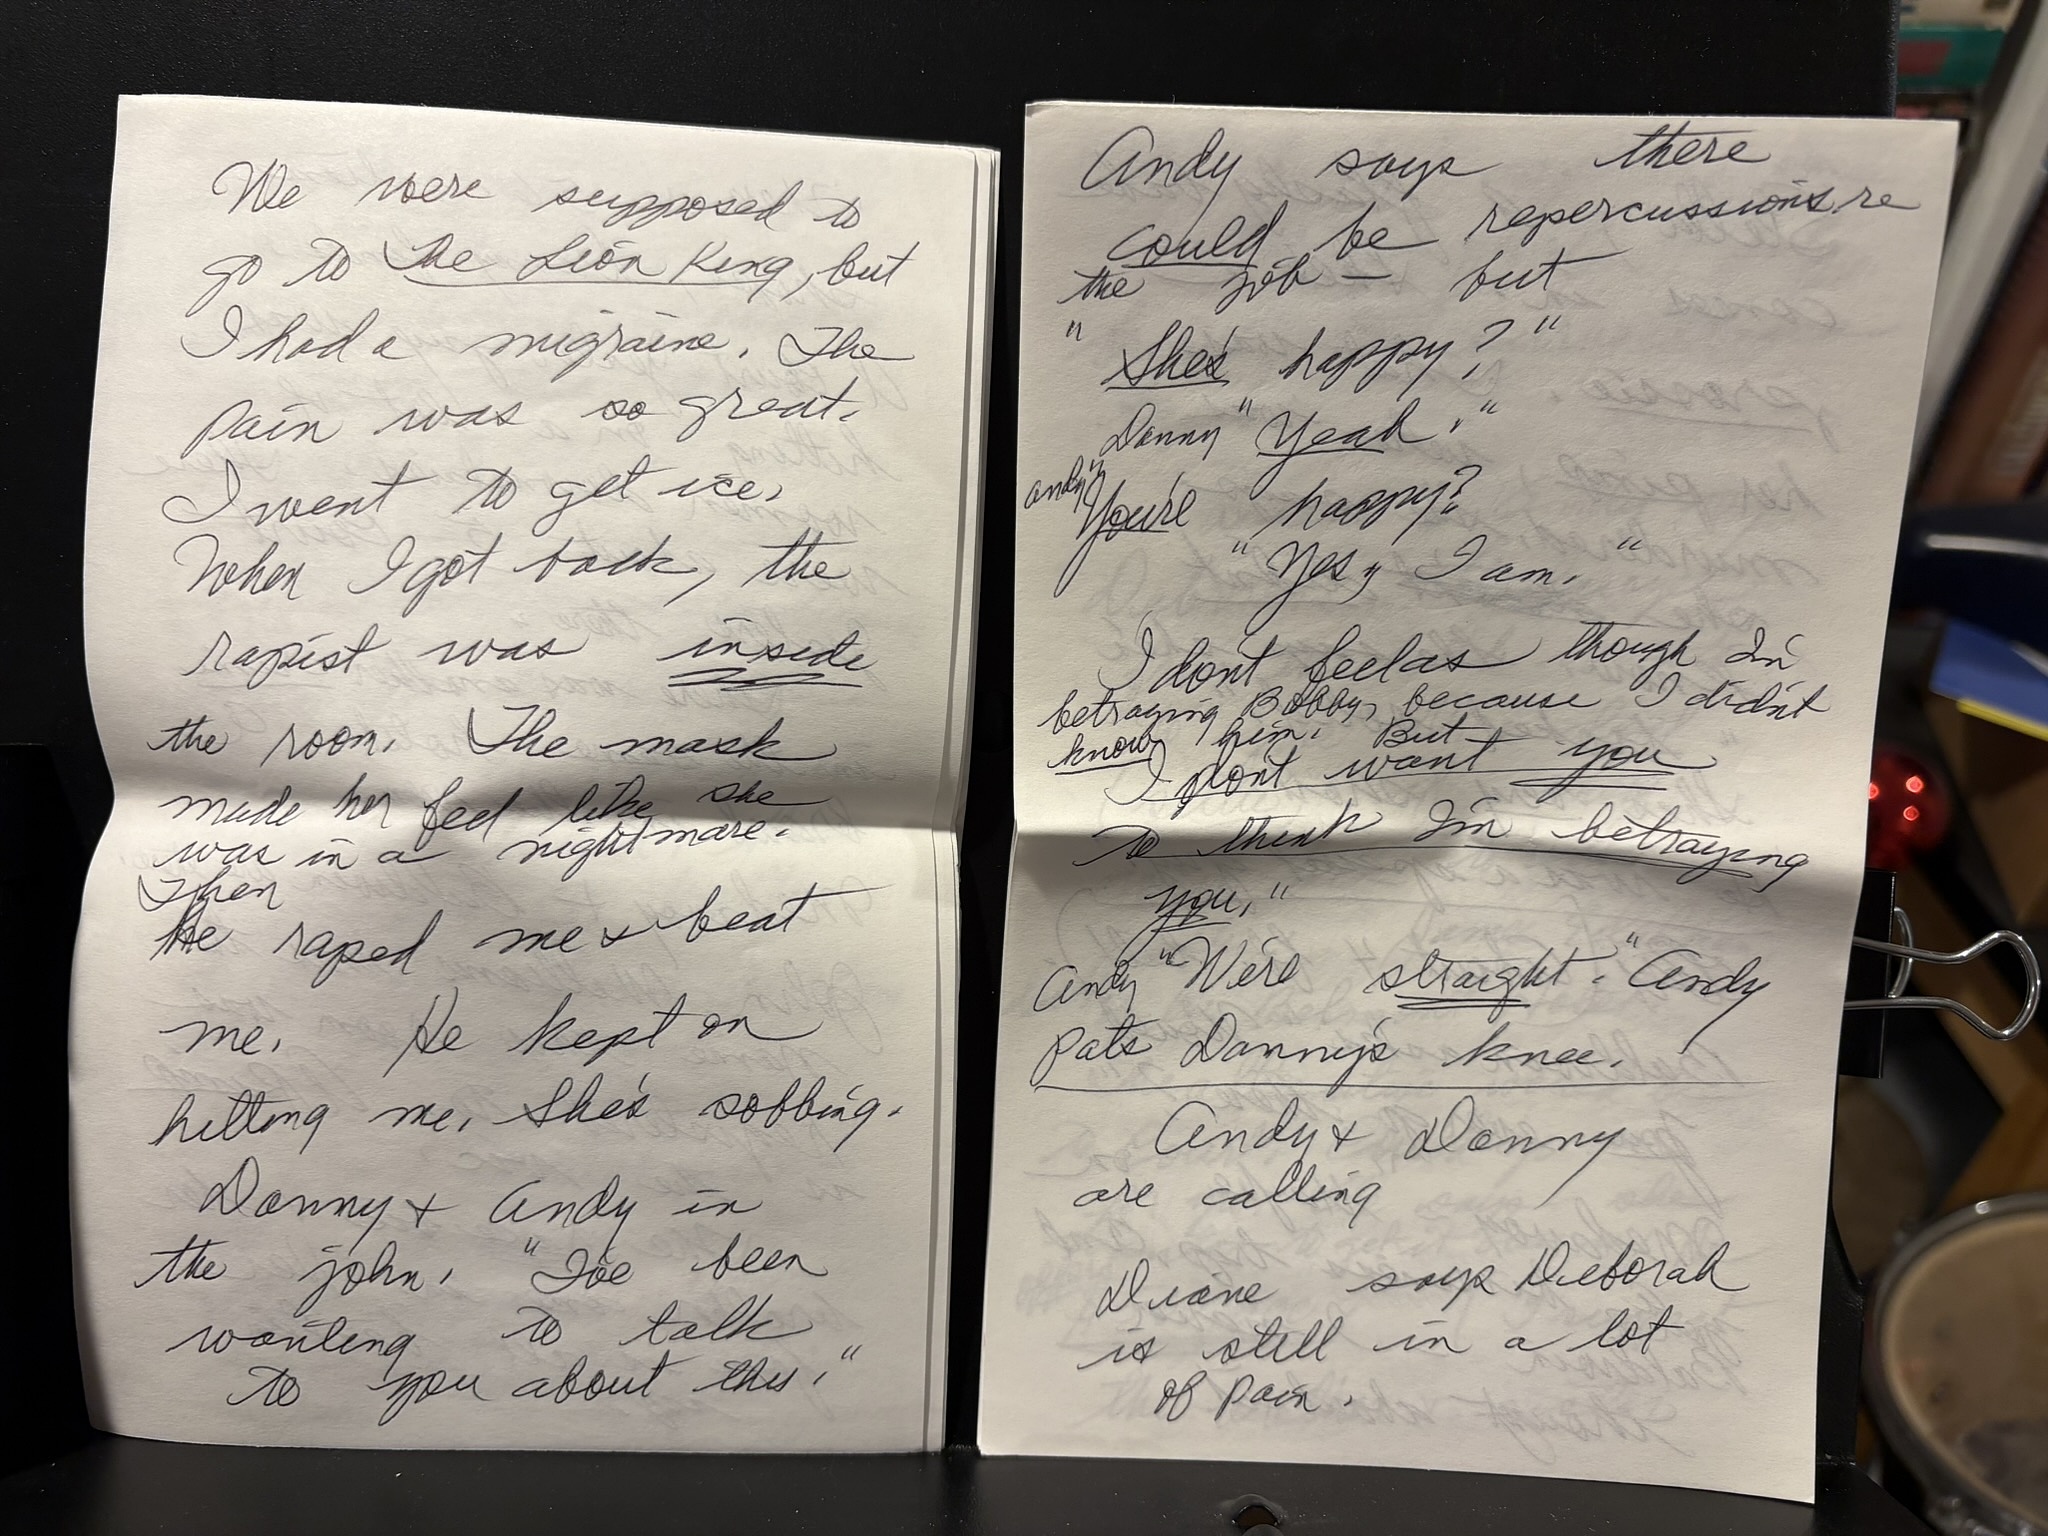 We were supposed to
go to The Lion King, but
I had a migraine. The
pain was so great.
I went to get ice.
When I got back, the
rapist was inside
the room. The mask
made her feel like she
was in a nightmare.
Then
He raped me & beat
me. He kept on
hitting me. She's sobbing.
Danny & Andy in
the john. "I've been
wanting to talk
to you about this."
Andy says there
could be repercussions re
the job — but
"She's happy?"
Danny "Yeah."
Andy "You're happy?
"Yes, I am."
I don't feel as though I'm
betraying Bobby, because I didn't
know him. But
I don't want you
to think I'm betraying
you."
Andy "We're straight." Andy
pats Danny's knee.
Andy & Danny
are calling
Diane says Deborah
is still in a lot
of pain.